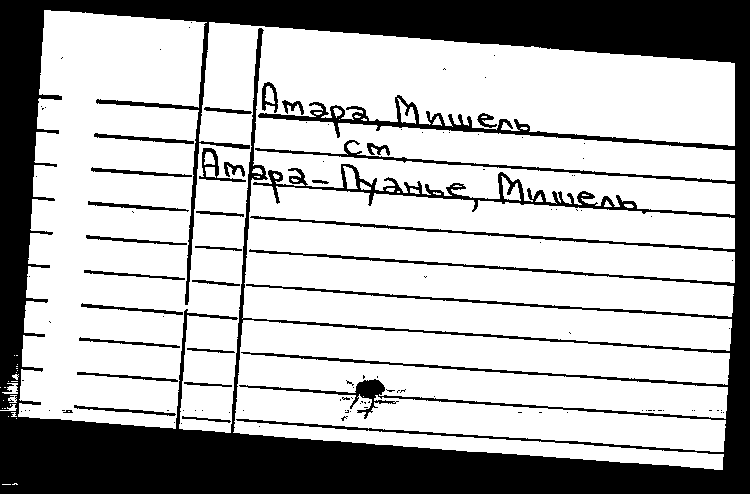 Амара, Мишель.
см.
Амара-Пуанье, Мишель.